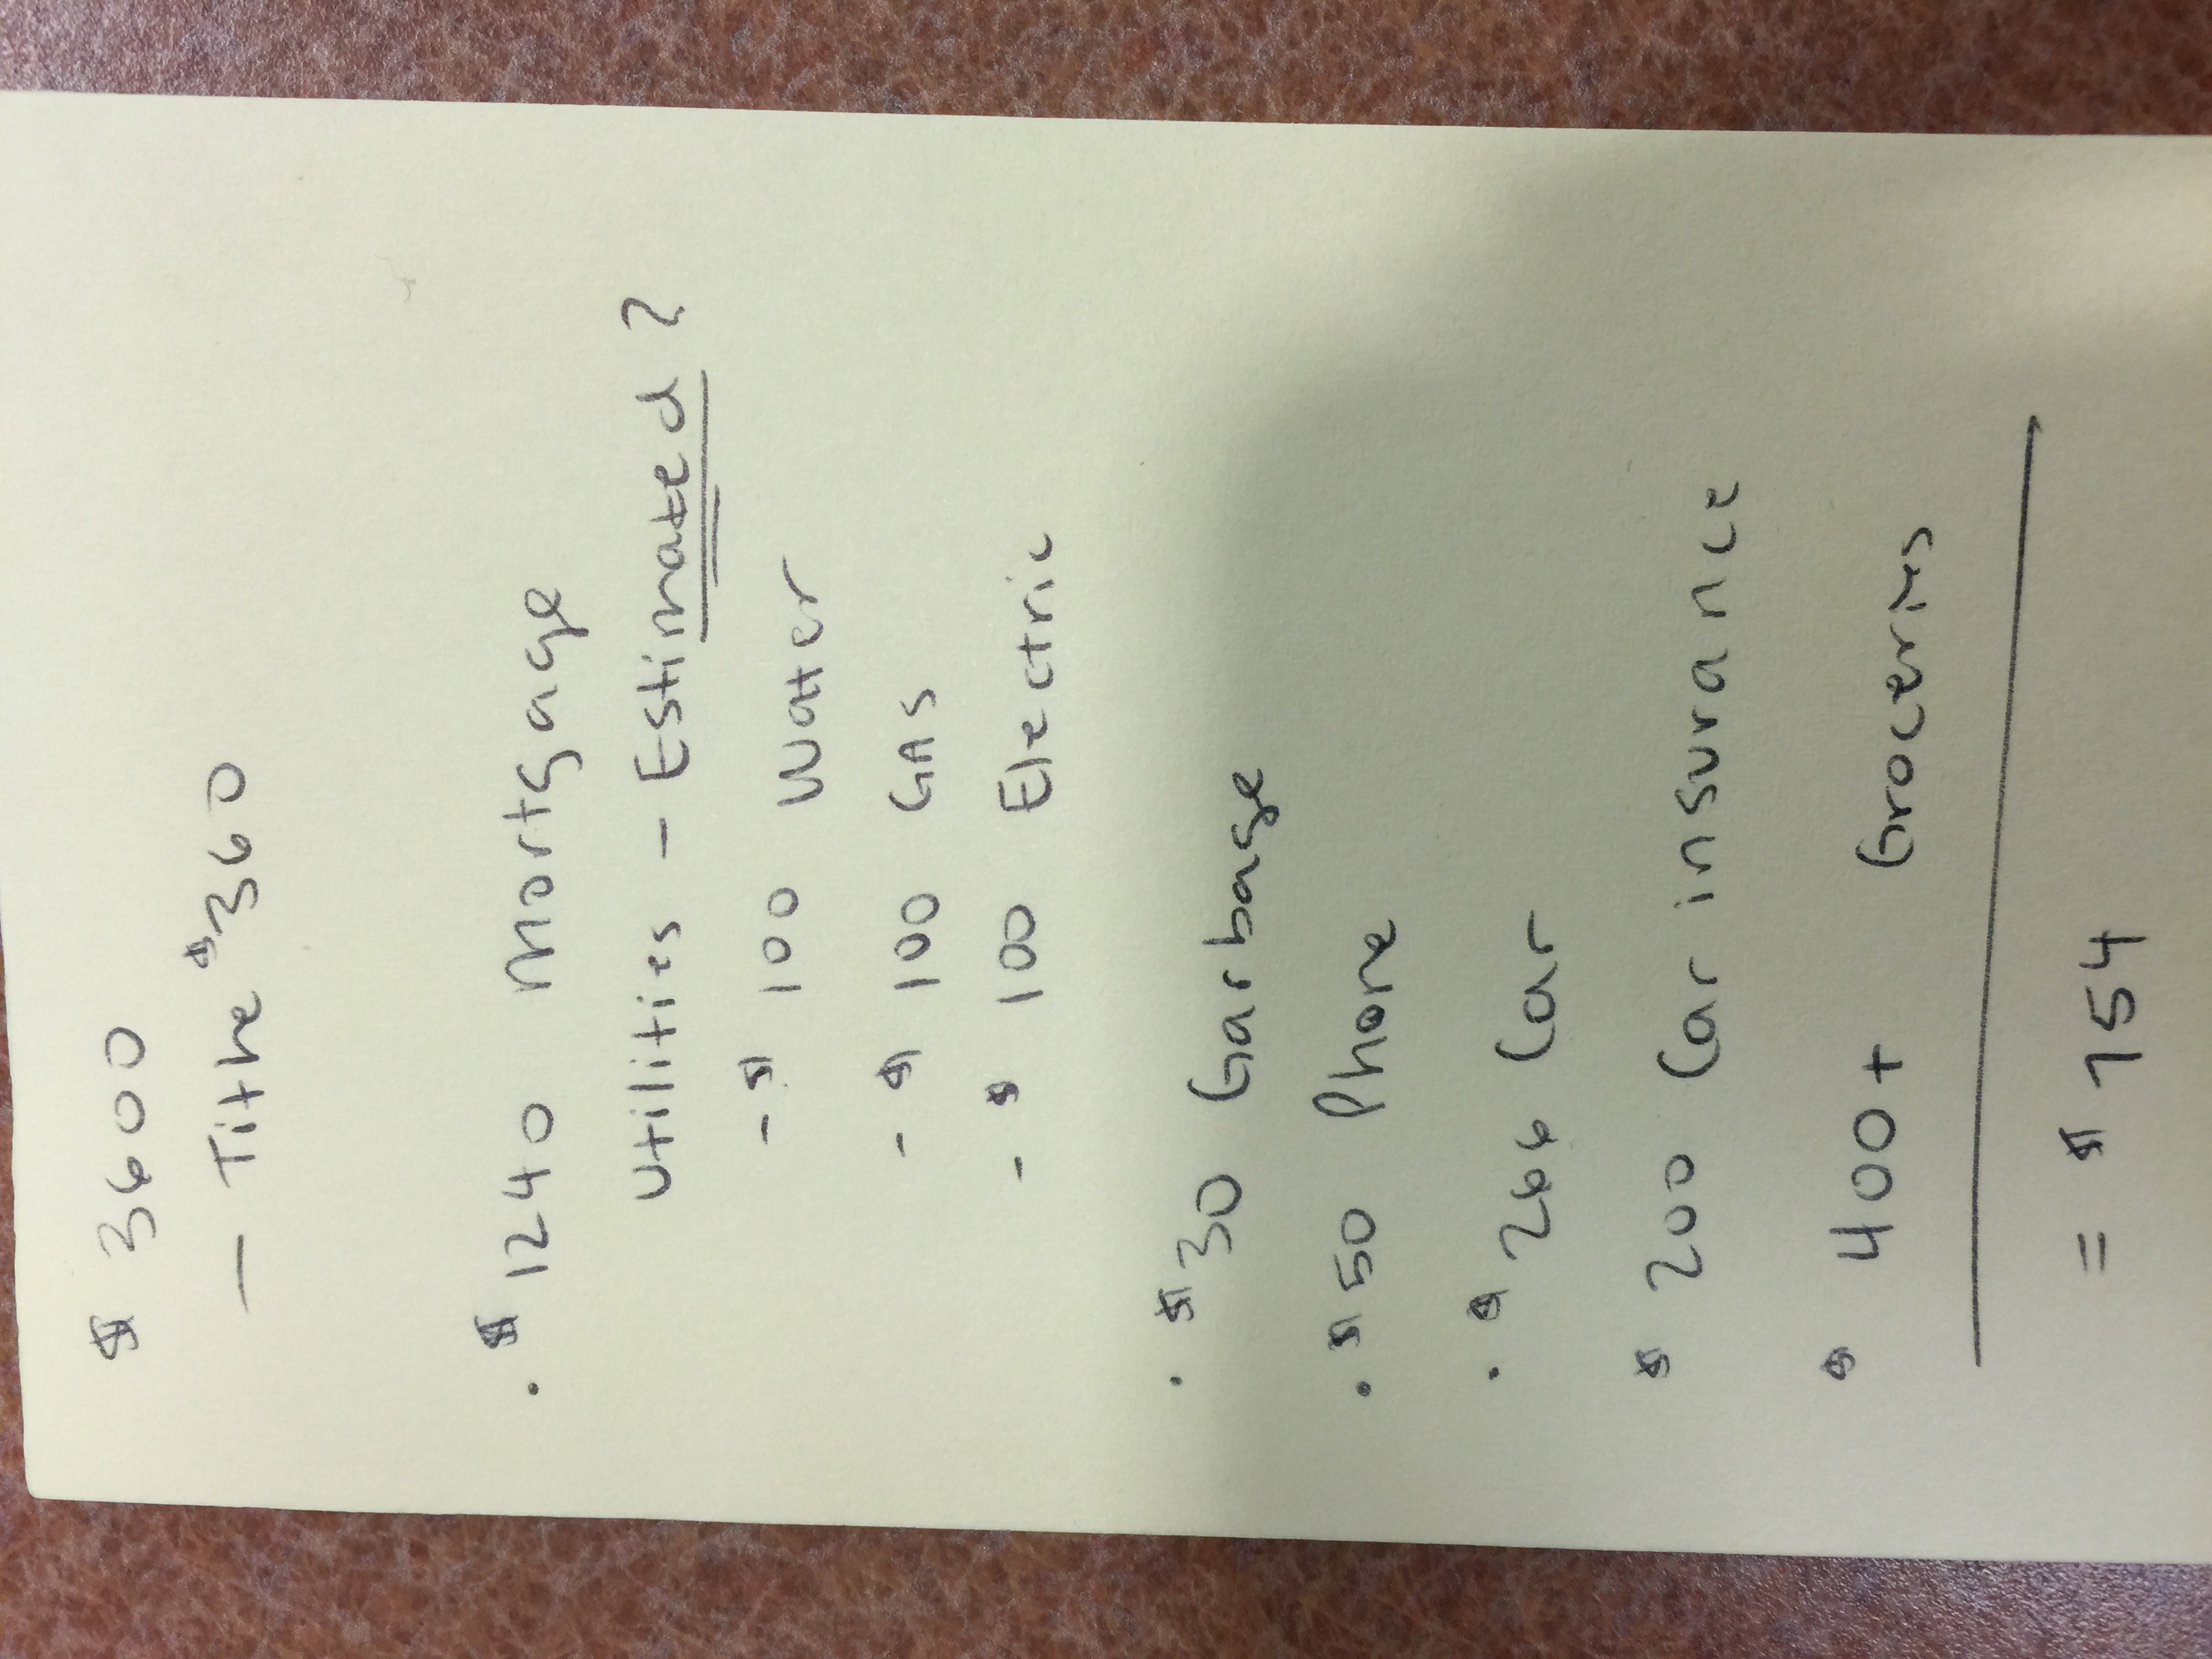 $ 3600
- Tithe $360
. $ 1240 Mortgage
Utilities - Estimated ?
- $ 100 Water
- $ 100 GAS
- $ 100 Electric
. $30 Garbage
. $50 Phone
. $266 Car
$ 200 Car insurance
$ 400+ Groceries
= $ 754